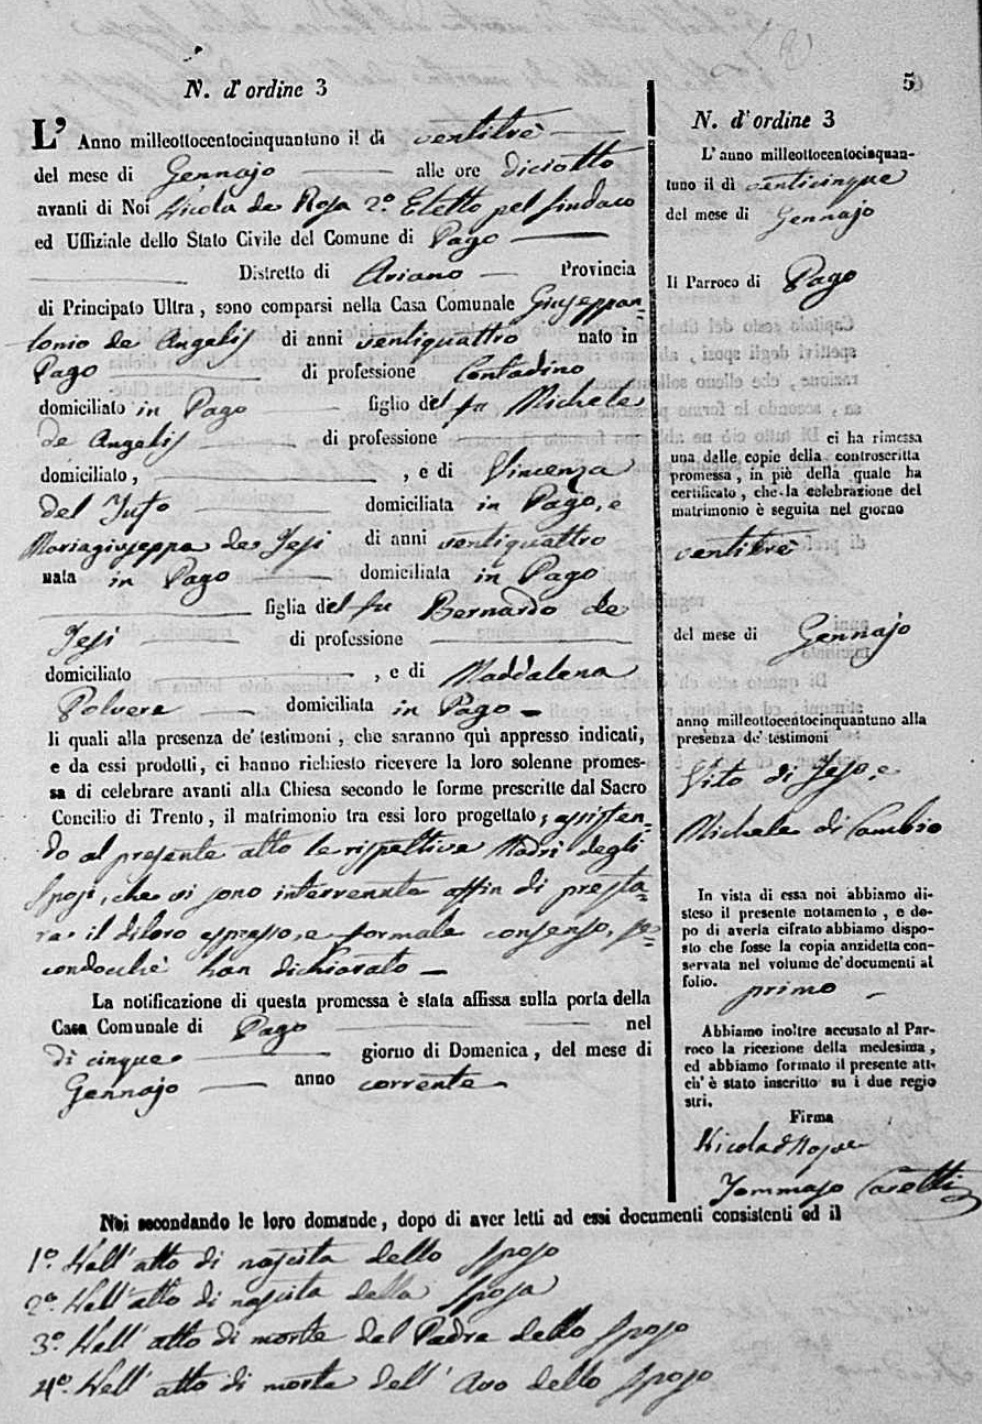 5
N. d'ordine 3
L' Anno milleottocentocinquantuno il dì ventitrè
del mese di Gennajo alle ore diciotto
avanti di Noi Nicola de Rosa 2.º Eletto pel Sindaco
ed Uffiziale dello Stato Civile del Comune di Pago
Distretto di Ariano Provincia
di Principato Ultra, sono comparsi nella Casa Comunale Giuseppan=
tonio de Angelis di anni ventiquattro nato in
Pago di professione Contadino
domiciliato in Pago figlio del fu Michele
de Angelis di professione
domiciliato, , e di Vincenza
del Tufo domiciliata in Pago, e
Mariagiuseppa de Jesi di anni ventiquattro
nata in Pago domiciliata in Pago
figlia del fu Bernardo de
Jesi di professione
domiciliato , e di Maddalena
Polvere domiciliata in Pago
li quali alla presenza de' testimoni, che saranno quì appresso indicati,
e da essi prodotti, ci hanno richiesto ricevere la loro solenne promes-
sa di celebrare avanti alla Chiesa secondo le forme prescritte dal Sacro
Concilio di Trento, il matrimonio tra essi loro progettato, assisten=
do al presente atto le rispettive Madri degli
Sposi, che vi sono intervenute affin di presta=
re il diloro espresso, e formale consenso, se=
condocchè han dichiarato
La notificazione di questa promessa è stata affissa sulla porta della
Casa Comunale di Pago nel
dì cinque giorno di Domenica, del mese di
Gennajo anno corrente
N. d'ordine 3
L'anno milleottocentocinquan-
tuno il dì venticinque
del mese di Gennajo
Il Parroco di Pago
ci ha rimessa
una delle copie della controscritta
promessa, in piè della quale ha
certificato, che la celebrazione del
matrimonio è seguita nel giorno
ventitrè
del mese di Gennajo
anno milleottocentocinquantuno alla
presenza de' testimoni
Vito di Jeso, e
Michele di Cambio
In vista di essa noi abbiamo di-
steso il presente notamento, e do-
po di averla cifrato abbiamo dispo-
sto che fosse la copia anzidetta con-
servata nel volume de' documenti al
folio. primo
Abbiamo inoltre accusato al Par-
roco la ricezione della medesima,
ed abbiamo formato il presente att.
ch' è stato inscritto su i due regi-
stri.
Firma
Nicola de Rosa
Tommaso
Noi secondando le loro domande, dopo di aver letti ad essi documenti consistenti ed il
1º. Nell' atto di nascita dello Sposo
2º. Nell' atto di nascita della Sposa
3º. Nell' atto di morte del Padre dello Sposo
4º. Nell' atto di morte dell' Avo dello Sposo